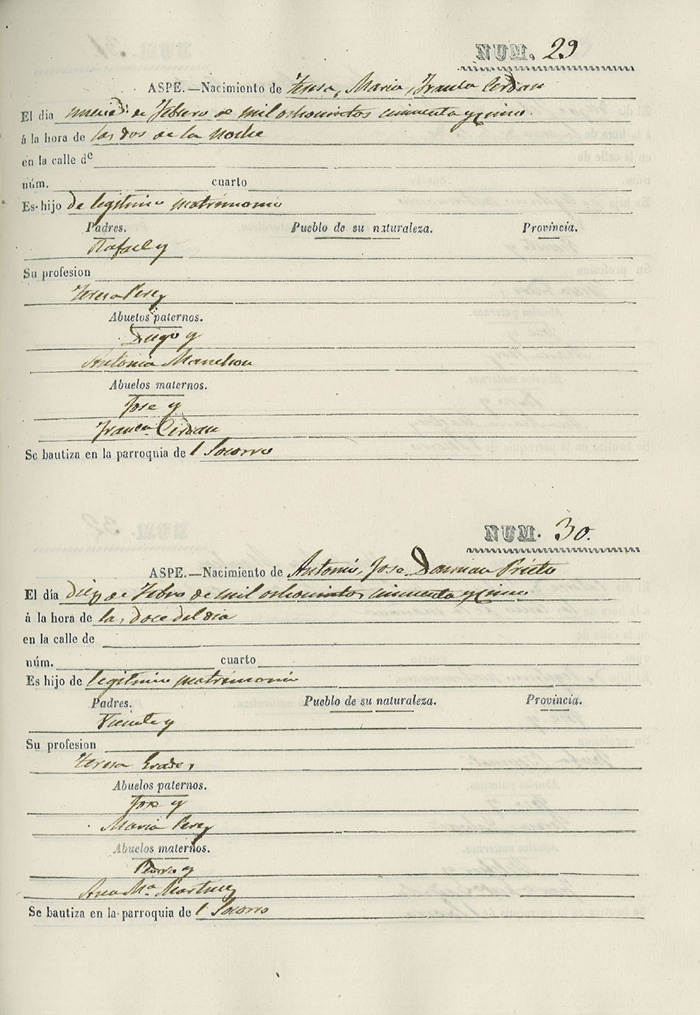 NUM. 29
ASPE.—Nacimiento de Teresa, Maria, Franca Cerdan
El dia nueve de Febrero de mil ochocientos cincuenta y cinco.
á la hora de las dos de la noche
en la calle de
núm. cuarto
Es hijo de legitimo matrimonio
Padres. Pueblo de su naturaleza. Provincia.
Rafael y
Su profesion
Teresa Perez
Abuelos paternos.
Diego y
Antonia Manchon
Abuelos maternos.
Jose y
Franca Cerdan
Se bautiza en la parroquia de l Socorro
NUM. 30.
ASPE.—Nacimiento de Antonio, Jose Prieto
El dia diez de Febro de mil ochocientos cincuenta y cinco
á la hora de las doce del dia
en la calle de
núm. cuarto
Es hijo de legitimo matrimonio
Padres. Pueblo de su naturaleza. Provincia.
Vicente y
Su profesion
Teresa
Abuelos paternos.
Jose y
Maria Perez
Abuelos maternos.
Pedro y
Ana Ma. Martinez
Se bautiza en la parroquia de l Socorro